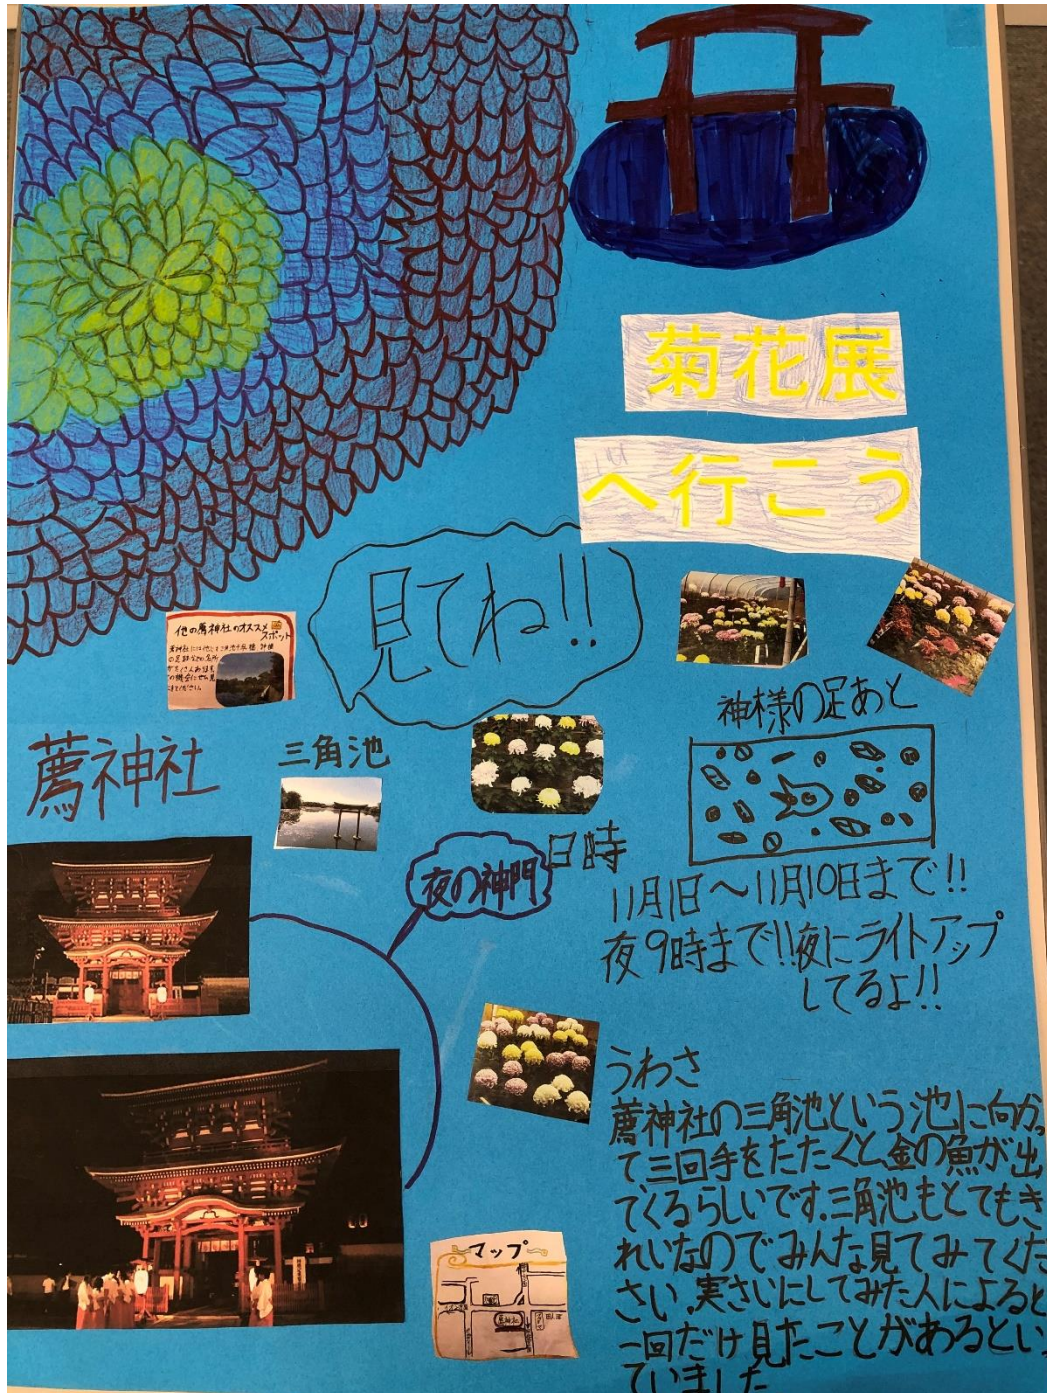 菊花展
へ行こう
見てね!!
他の薦神社のオススメ
スポット
の機会にぜひ見
薦神社
三角池
神様の足あと
夜の神門
日時
11月1日～11月10日まで!!
夜9時まで!!夜にライトアップ
してるよ!!
うわさ
薦神社の三角池という池に向かっ
て三回手をたたくと、金の魚が出
てくるらしいです.三角池もとてもき
れいなのでみんな見てみてくだ
さい.実さいにしてみた人によると
一回だけ見たことがあるといっ
ていました
マップ
薦神社